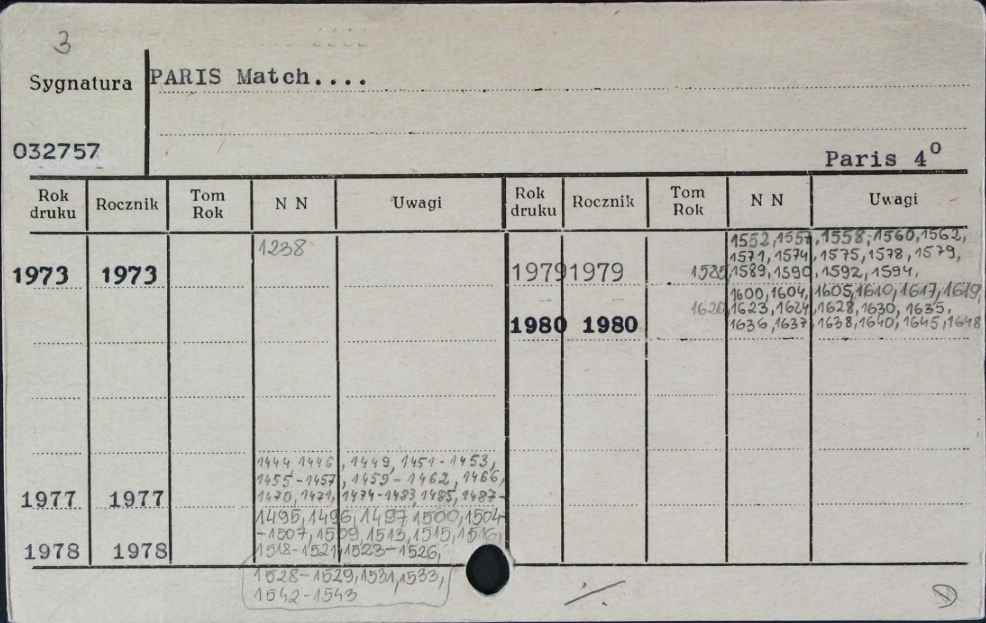 3
Sygnatura PARIS Match....
032757
Paris 4°
Rok druku Rocznik Tom Rok N N Uwagi Rok druku Rocznik Tom Rok N N Uwagi
1973 1973 1238
1977 1977
1444, 1446, 1449, 1451-1453,
1455-1457, 1459-1462, 1466,
1470, 1471, 1474-1483, 1485, 1487-
1978 1978
1495, 1496, 1497, 1500, 1504
-1507, 1509, 1513, 1515, 1516,
1518-1521, 1523-1526,
1528-1529, 1531, 1533,
1542-1543
1979 1979
1552, 1557, 1558, 1560, 1562,
1571, 1574, 1575, 1578, 1579,
1589, 1590, 1592, 1594,
1980 1980
1600, 1604, 1605, 1610, 1617, 1619,
1620, 1623, 1624, 1628, 1630, 1635,
1636, 1637, 1638, 1640, 1645, 1648